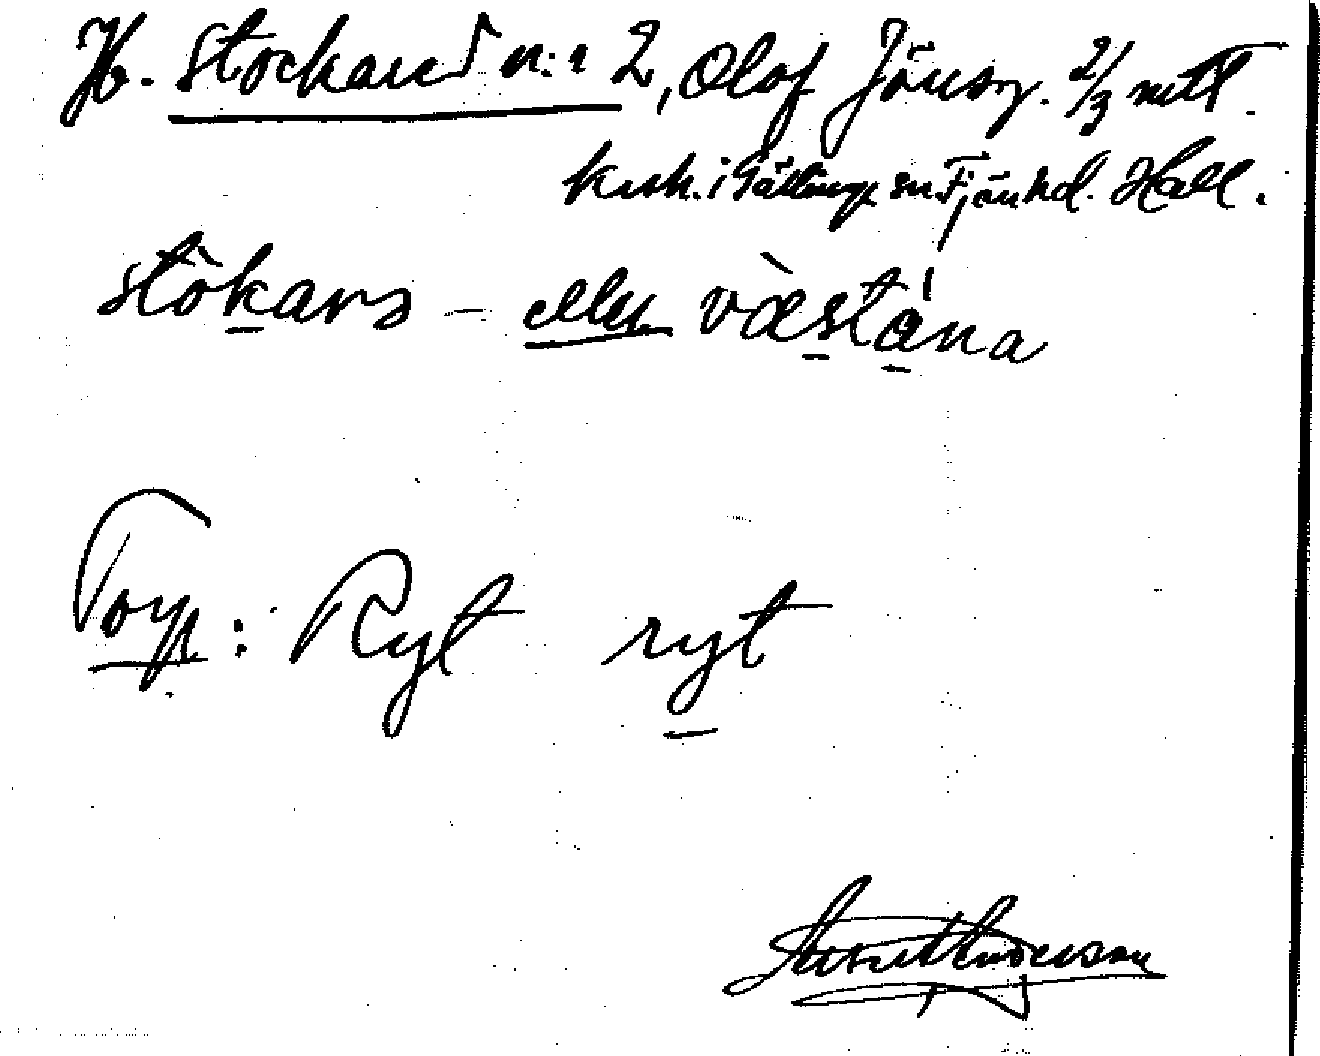 Hb. Stockared n:r 2, Olof Jönsn. 2/3 mtl
kush. i Gällinge sn. Fjäre hd. Hall.
stòkars - eller væ̀stána
Torp: Ryt ryt